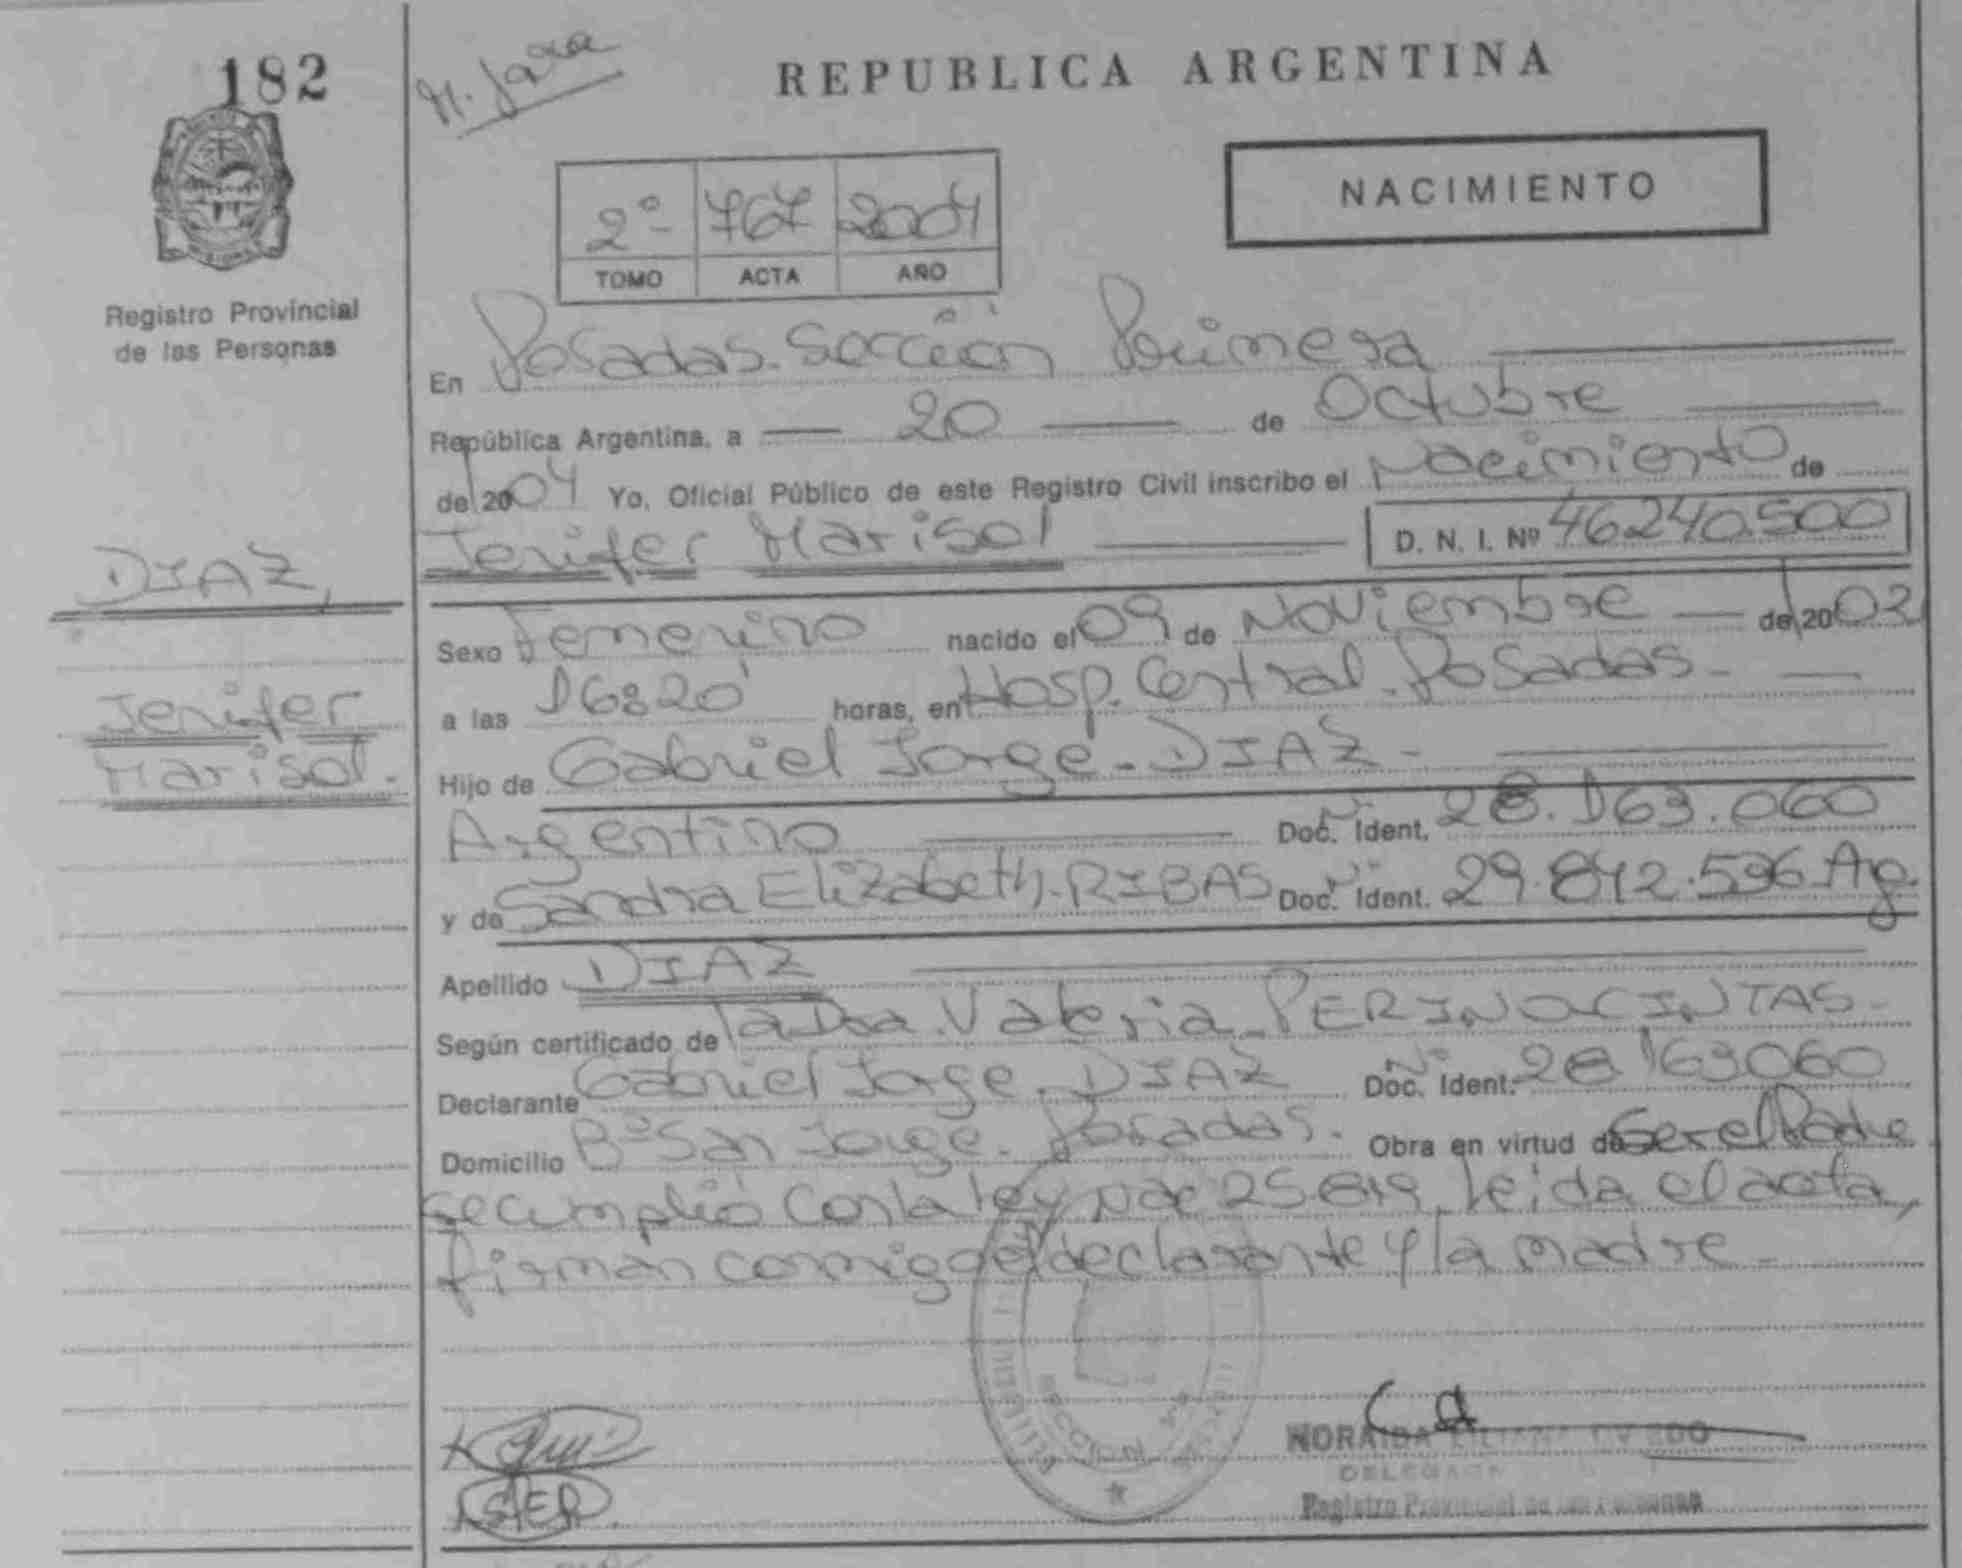 182
M. Jara
REPUBLICA ARGENTINA
NACIMIENTO
2º 767 2004
TOMO ACTA AÑO
Registro Provincial
de las Personas
En Posadas. Sección Primera
República Argentina, a 20 de Octubre
de 2004 Yo, Oficial Público de este Registro Civil inscribo el Nacimiento de
Jenifer Marisol D. N. I. Nº 46240.500
DIAZ,
Jenifer
Marisol.
Sexo Femenino nacido el 09 de Noviembre de 2003
a las 16:20' horas, en Hosp. Central. Posadas-
Hijo de Gabriel Jorge. DIAZ-
Argentino Doc. Ident. Nº 28.163.060
y de Sandra Elizabeth. RIBAS Doc. Ident. Nº 29.842.596 Ag.
Apellido DIAZ
Según certificado de la Dra. Valeria PERINOCINTAS-
Declarante Gabriel Jorge. DIAZ Doc. Ident. Nº 28163060
Domicilio Bº San Jorge. Posadas. Obra en virtud de Ser el Padre
se cumplió con la ley Nac 25.819, leida el acta,
firman conmigo el declarante y la madre-
SECCION
SER
NORAIDA LILIANA
DELEGADA
Registro Provincial de las Personas